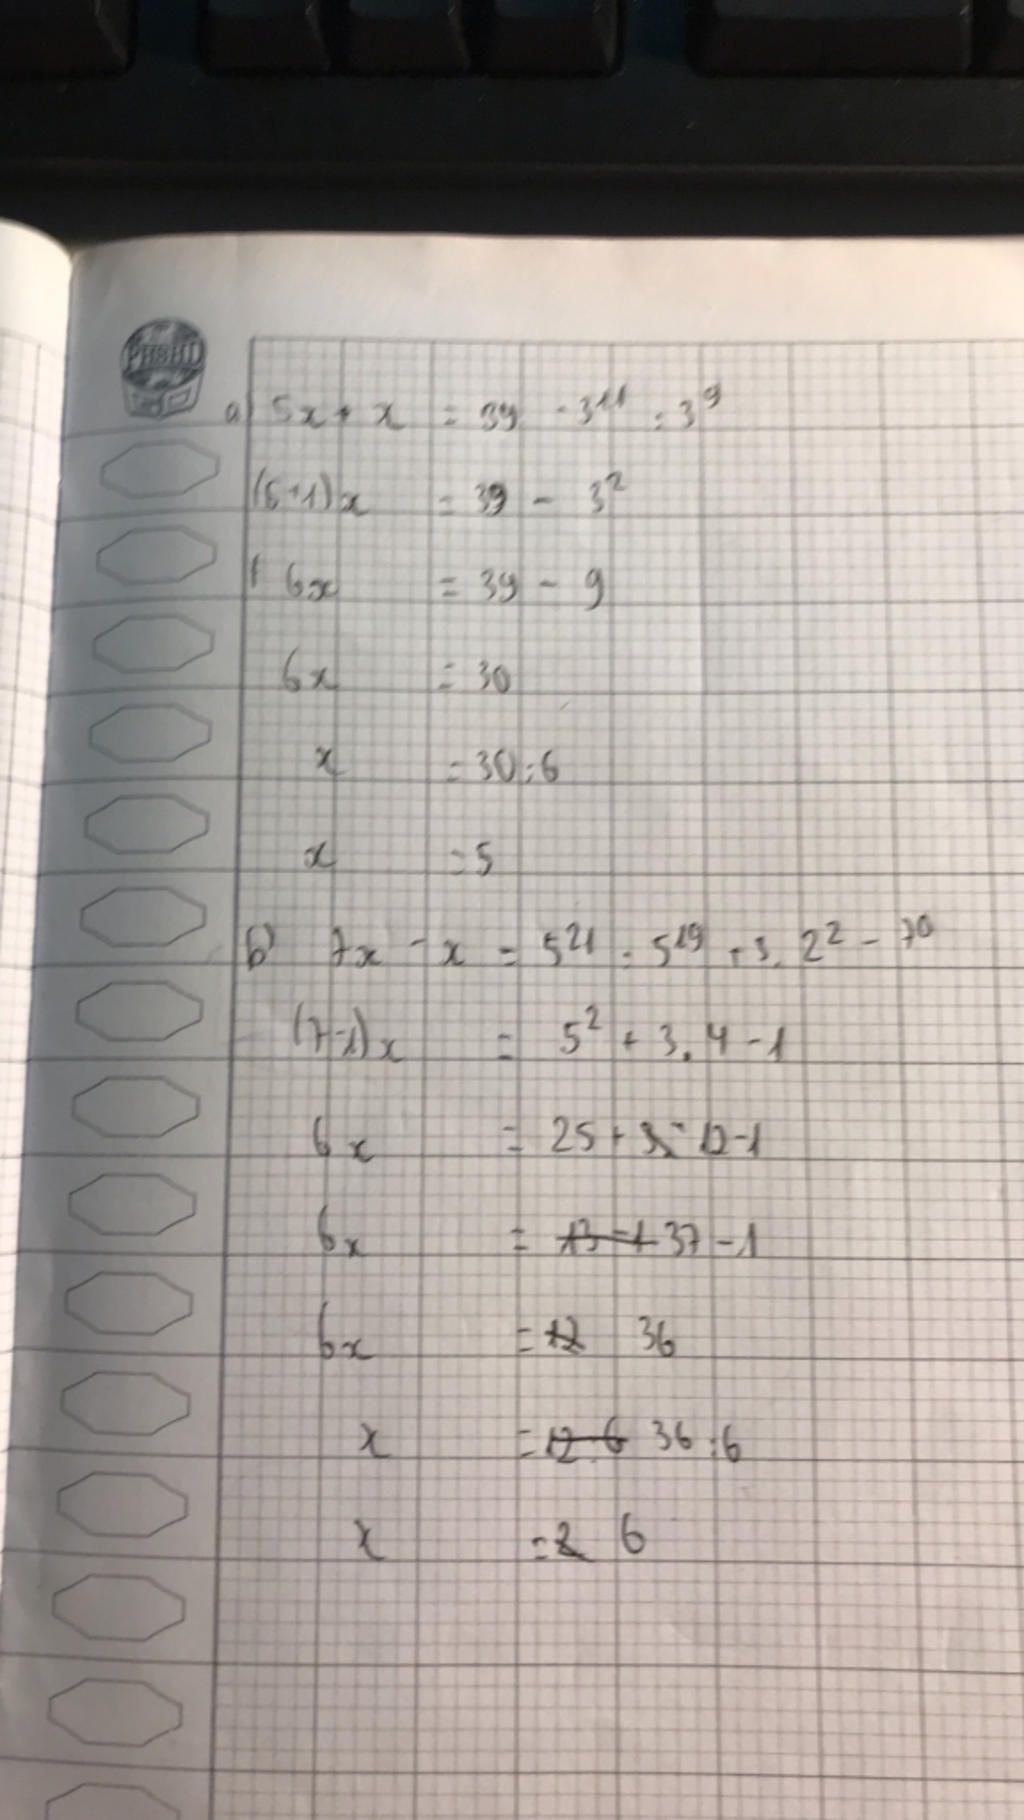 a) 5x + x = 39 - 3¹¹ : 3⁹
(5+1)x = 39 - 3²
6x = 39 - 9
6x = 30
x = 30 : 6
x = 5
b) 7x - x = 5²¹ : 5¹⁹ + 3 . 2² - 7⁰
(7-1)x = 5² + 3 . 4 - 1
6x = 25 + 12 - 1
6x = 13 - 1 37 - 1
6x = 12 36
x = 12 : 6 36 : 6
x = 2 6